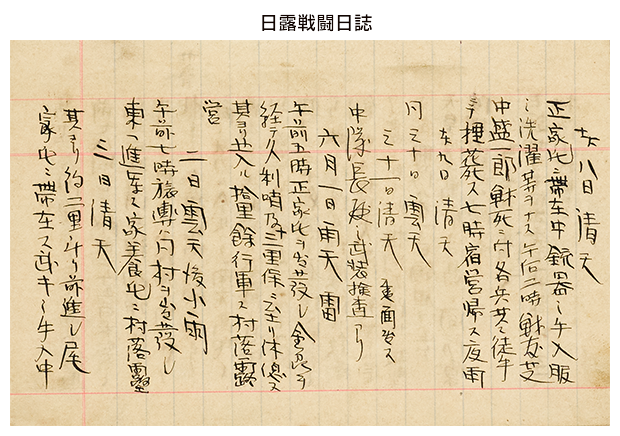 日露戦闘日誌
廿八日 清天
正家屯ニ滞在中 銃器ノ手入服
ノ洗濯等ヲナス 午后二時 戦友芝
中盛一郎 戦死ニ付 各兵共ニ徒歩
ニテ 埋葬ス 七時宿営帰ス 夜雨
廿九日 清天
同三十日 曇天
三十一日 清天
中隊長殿ノ武装検査アリ
六月一日 雨天 雷
午前五時正家屯ヲ出発シ金家ヲ
経テ 三里保ニ至リ休憩ス
其ヨリ 拾里餘行軍ス村落露
営
二日 曇天後小雨
午前七時 村ヲ出発シ
東へ進軍ス 家養屯ニ村落露営
三日 清天
其ヨリ約二里斗リ前進シ 尾
家屯ニ滞在ス 武キノ手入中